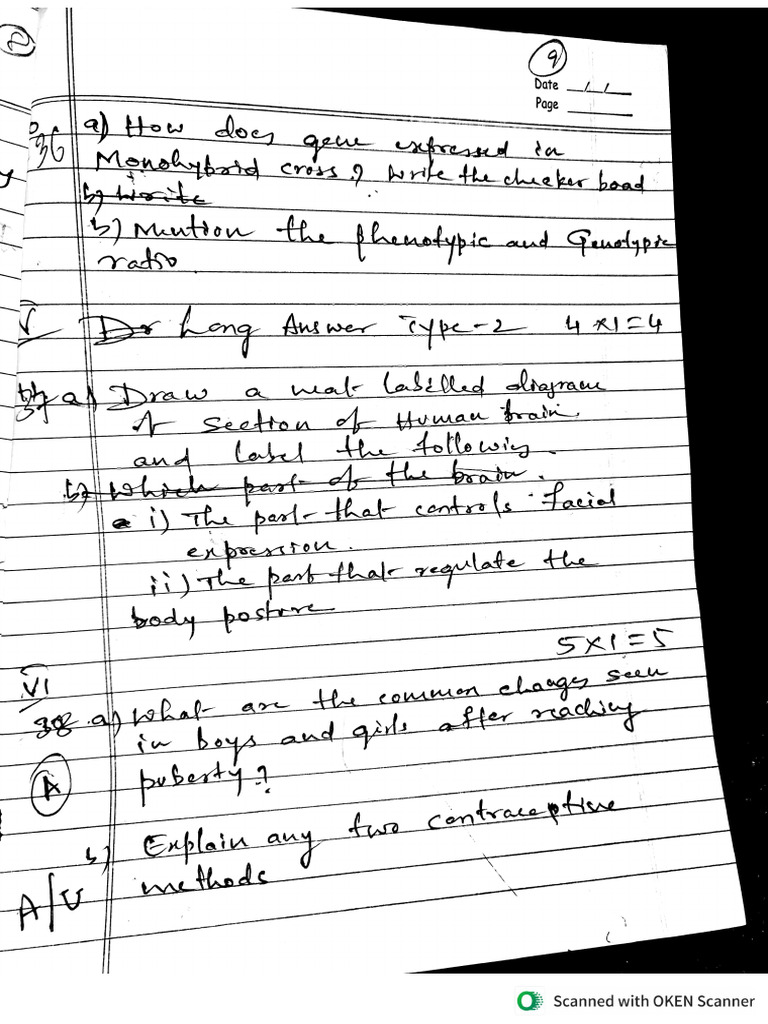 2
9
Date / /
Page
36 a) How does gene expressed in
Monohybrid cross? Write the checker boad
b) Write
b) Mention the phenotypic and Genotypic
ratio.
V Long Answer Type-2 4×1=4
37 a) Draw a neat labelled diagram
of section of Human brain
and label the following.
b) Which part of the brain.
i) The part that controls facial
expression.
ii) The part that regulate the
body posture
5×1=5
VI
38 a) What are the common changes seen
in boys and girls after reaching
puberty?
A
b) Explain any two contraceptive
methods
A/U
Scanned with OKEN Scanner